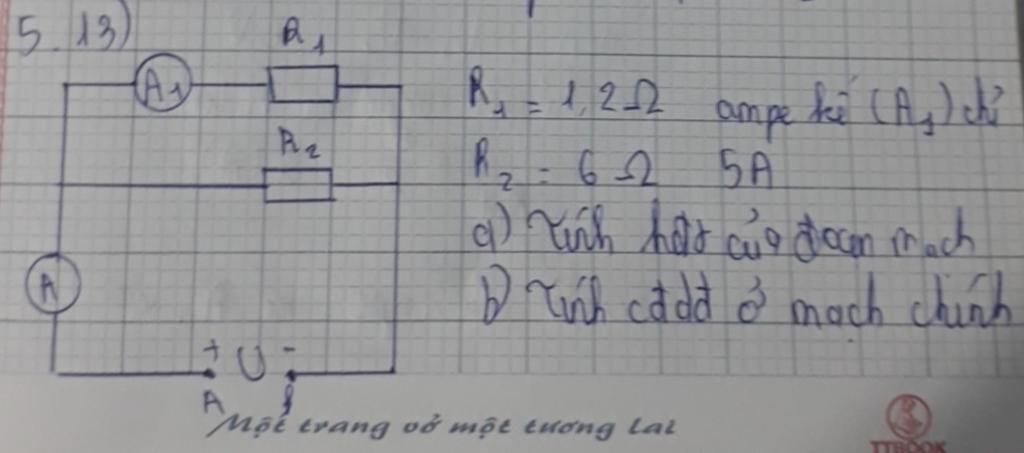 5.13)
R₁
A₁
R₂
A
+ U -
A
R₁ = 1,2Ω ampe kế (A₁) chỉ
R₂ = 6Ω 5A
a) Tính hđt của đoạn mạch
b) Tính cđdđ ở mạch chính
Một trang vở một tương lai
TTBOOK